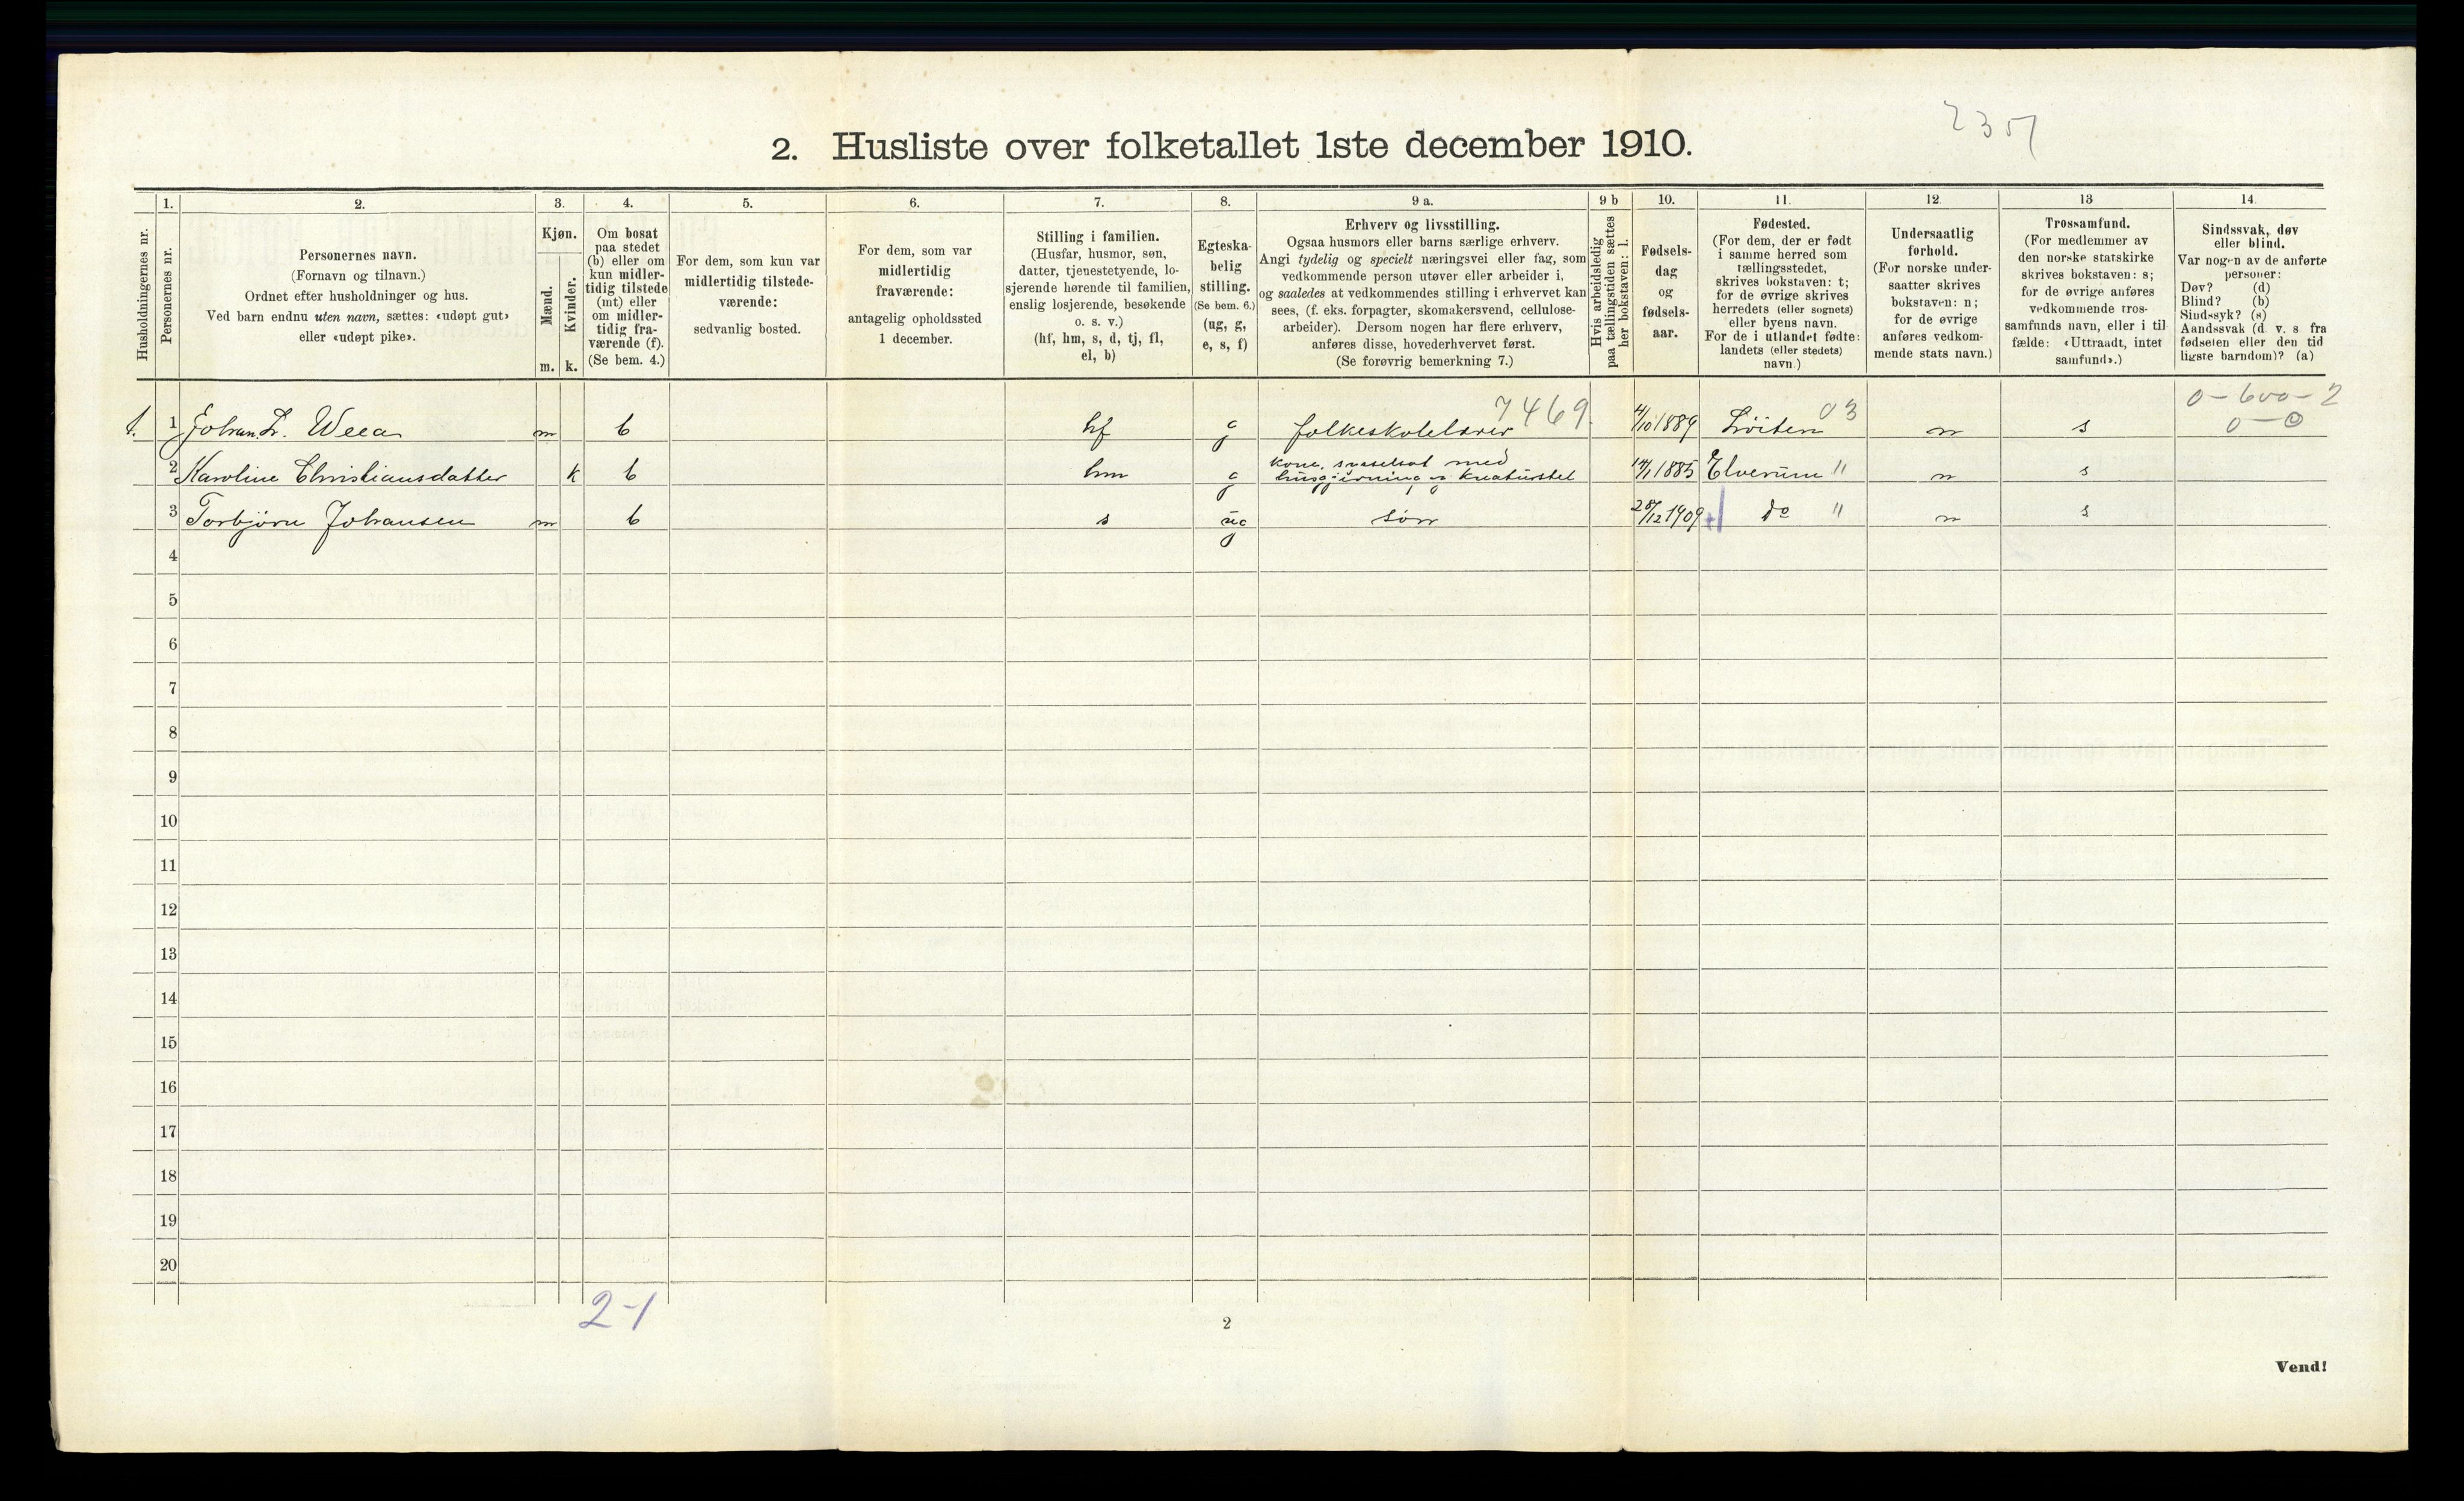 2351
2. Husliste over folketallet 1ste december 1910.
Husholdningernes nr.
1.
Personernes nr.
2.
Personernes navn.
(Fornavn og tilnavn.)
Ordnet efter husholdninger og hus.
Ved barn endnu uten navn, sættes: «udøpt gut»
eller «udøpt pike».
3.
Kjøn.
Mænd.
Kvinder.
m. k.
4.
Om bosat
paa stedet
(b) eller om
kun midler-
tidig tilstede
(mt) eller
om midler-
tidig fra-
værende (f).
(Se bem. 4.)
5.
For dem, som kun var
midlertidig tilstede-
værende:
sedvanlig bosted.
6.
For dem, som var
midlertidig
fraværende:
antagelig opholdssted
1 december.
7.
Stilling i familien.
(Husfar, husmor, søn,
datter, tjenestetyende, lo-
sjerende hørende til familien,
enslig losjerende, besøkende
o. s. v.)
(hf, hm, s, d, tj, fl,
el, b)
8.
Egteska-
belig
stilling.
(Se bem. 6.)
(ug, g,
e, s, f)
9 a.
Erhverv og livsstilling.
Ogsaa husmors eller barns særlige erhverv.
Angi tydelig og specielt næringsvei eller fag, som
vedkommende person utøver eller arbeider i,
og saaledes at vedkommendes stilling i erhvervet kan
sees, (f. eks. forpagter, skomakersvend, cellulose-
arbeider). Dersom nogen har flere erhverv,
anføres disse, hovederhvervet først.
(Se forøvrig bemerkning 7.)
9 b
Hvis arbeidsledig
paa tællingstiden sættes
her bokstaven: l.
10.
Fødsels-
dag
og
fødsels-
aar.
11.
Fødested.
(For dem, der er født
i samme herred som
tællingsstedet,
skrives bokstaven: t;
for de øvrige skrives
herredets (eller sognets)
eller byens navn.
For de i utlandet fødte:
landets (eller stedets)
navn.)
12.
Undersaatlig
forhold.
(For norske under-
saatter skrives
bokstaven: n;
for de øvrige
anføres vedkom-
mende stats navn.)
13
Trossamfund.
(For medlemmer av
den norske statskirke
skrives bokstaven: s;
for de øvrige anføres
vedkommende tros-
samfunds navn, eller i til-
fælde: «Uttraadt, intet
samfund».)
14.
Sindssvak, døv
eller blind.
Var nogen av de anførte
personer:
Døv? (d)
Blind? (b)
Sindssyk? (s)
Aandssvak (d. v. s. fra
fødselen eller den tid-
ligste barndom)? (a)
7469 03 0-600-2
0-0
1. 1 Johan L. Weea m b hf g folkeskolelærer 4/10 1889 Løiten n s
2 Karoline Christiansdatter k b hm g kone, sysselsat med husgjerning og kreaturstel 14/1 1885 Elverum " n s
3 Torbjørn Johansen m b s ug søn 28/12 1909 do " n s
4
5
6
7
8
9
10
11
12
13
14
15
16
17
18
19
20
2-1
2
Vend!